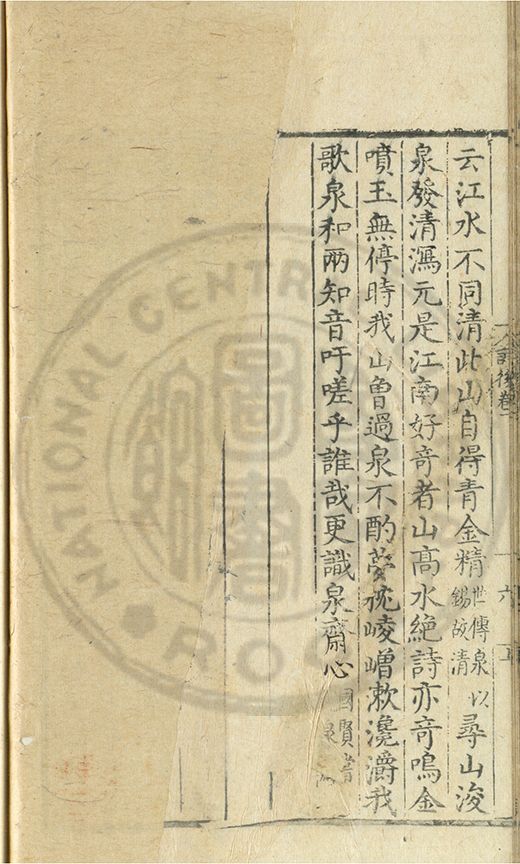 詩後卷
六
云江水不同清此山自得青金精世傳泉以錫故清尋山浚
泉發清瀉元是江南好奇者山高水絶詩亦奇鳴金
噴玉無停時我山曾過泉不酌夢枕崚嶒漱瀺灂我
歌泉和兩知音吁嗟乎誰哉更識泉齋心國賢書泉